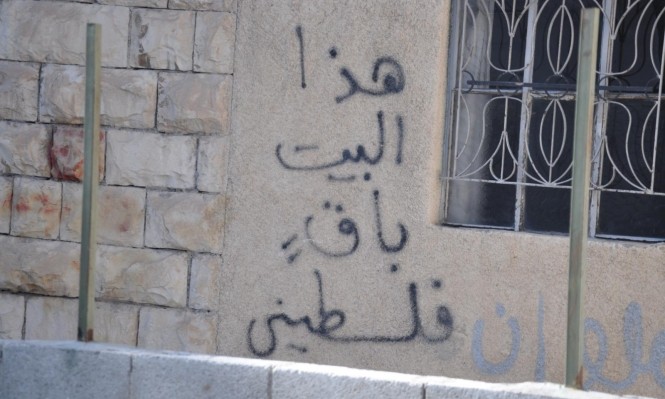 هذا
البيت
باقٍ
فلسطيني